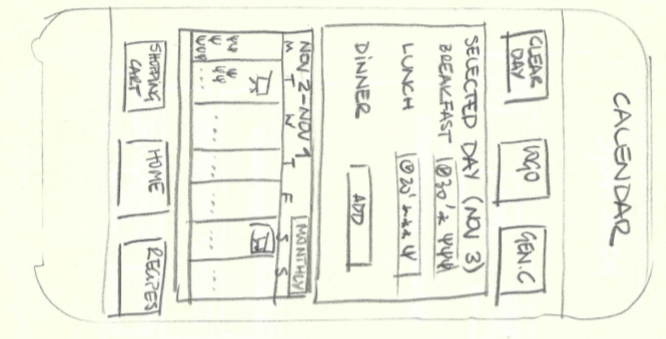 CALENDAR
CLEAR DAY
LOGO
GEN.C
SELECTED DAY (NOV 3)
BREAKFAST
30'
LUNCH
20'
DINNER
ADD
NOV 2-NOV
MONTHLY
M T W T F S S
SHOPPING CART
HOME
RECIPES